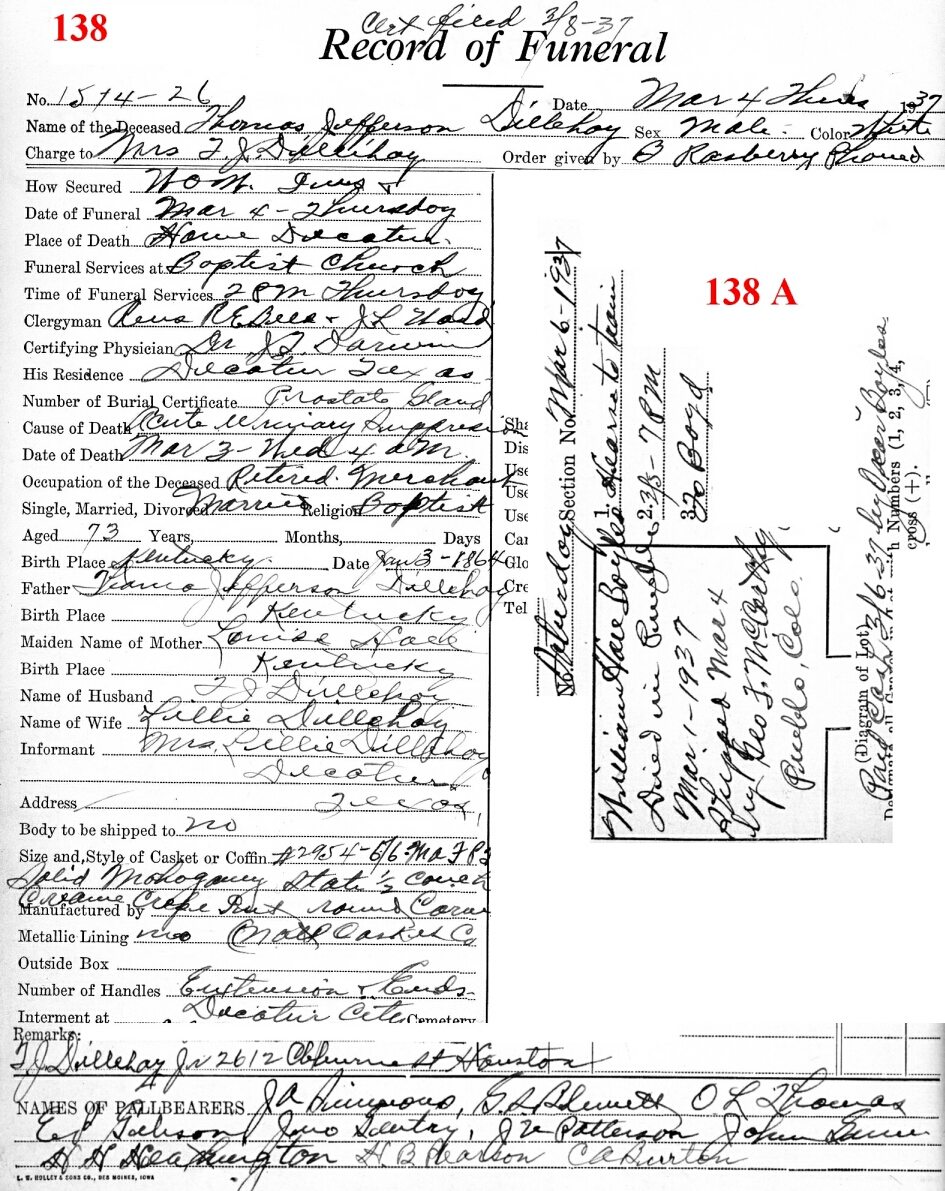 138
Cert filed 3/8-37
Record of Funeral
No. 1514-26 Date Mar 4 Thurs 1937
Name of the Deceased Thomas Jefferson Dillehay Sex Male Color White
Charge to Mrs T. J. Dillehay Order given by B Rasberry Phoned
How Secured W.O.W.
Date of Funeral Mar 4 - Thursday
Place of Death Home Decatur
Funeral Services at Baptist Church
Time of Funeral Services 2 PM Thursday
Clergyman Revs R E Bell & J L Ward
Certifying Physician Dr. J. J.
His Residence Decatur Texas
Number of Burial Certificate Prostate Gland
Cause of Death Acute Urinary Suppression
Date of Death Mar 3 - Wed 4 AM.
Occupation of the Deceased Retered Merchant
Single, Married, Divorced Married Religion Baptist
Aged 73 Years, Months, Days
Birth Place Kentucky. Date Jan 3-1864
Father Jefferson Dillehay
Birth Place Kentucky
Maiden Name of Mother Louise Hall
Birth Place Kentucky
Name of Husband T J Dillehay
Name of Wife Lillie Dillehay
Informant Mrs. Lillie Dillehay
Decatur
Address Texas
Body to be shipped to no
Size and Style of Casket or Coffin #2954-6/6
Solid Mohogany State 1/2 Couch
Creame Crepe round
Manufactured by
Metallic Lining no Casket Co
Outside Box
Number of Handles Extension & Ends
Interment at Decatur City Cemetery
138 A
No. Section No.
Saturday Mar 6-1937
1. Hearse to train
2. 238-7 PM
3. To Boyd
William Boyles
Died in Pueblo
Mar 1-1937
Shipped Mar 4
by Geo F. McCarthy
Pueblo, Colo.
(Diagram of Lot)
Paid Cash 3/6-37 by Oscar Boyles
h Numbers (1, 2, 3, 4,
cross (+).
Sha
Dis
Use
Use
Use
Car
Glo
Cre
Tel
Remarks:
T J Dillehay Jr 2612 Cleburne St Houston
NAMES OF PALLBEARERS J A Simmons, O L Thomas
Ed Gentry, Patterson, John
H H Heathington H B Pearson C A Burton
L. W. HOLLEY & SONS CO., DES MOINES, IOWA